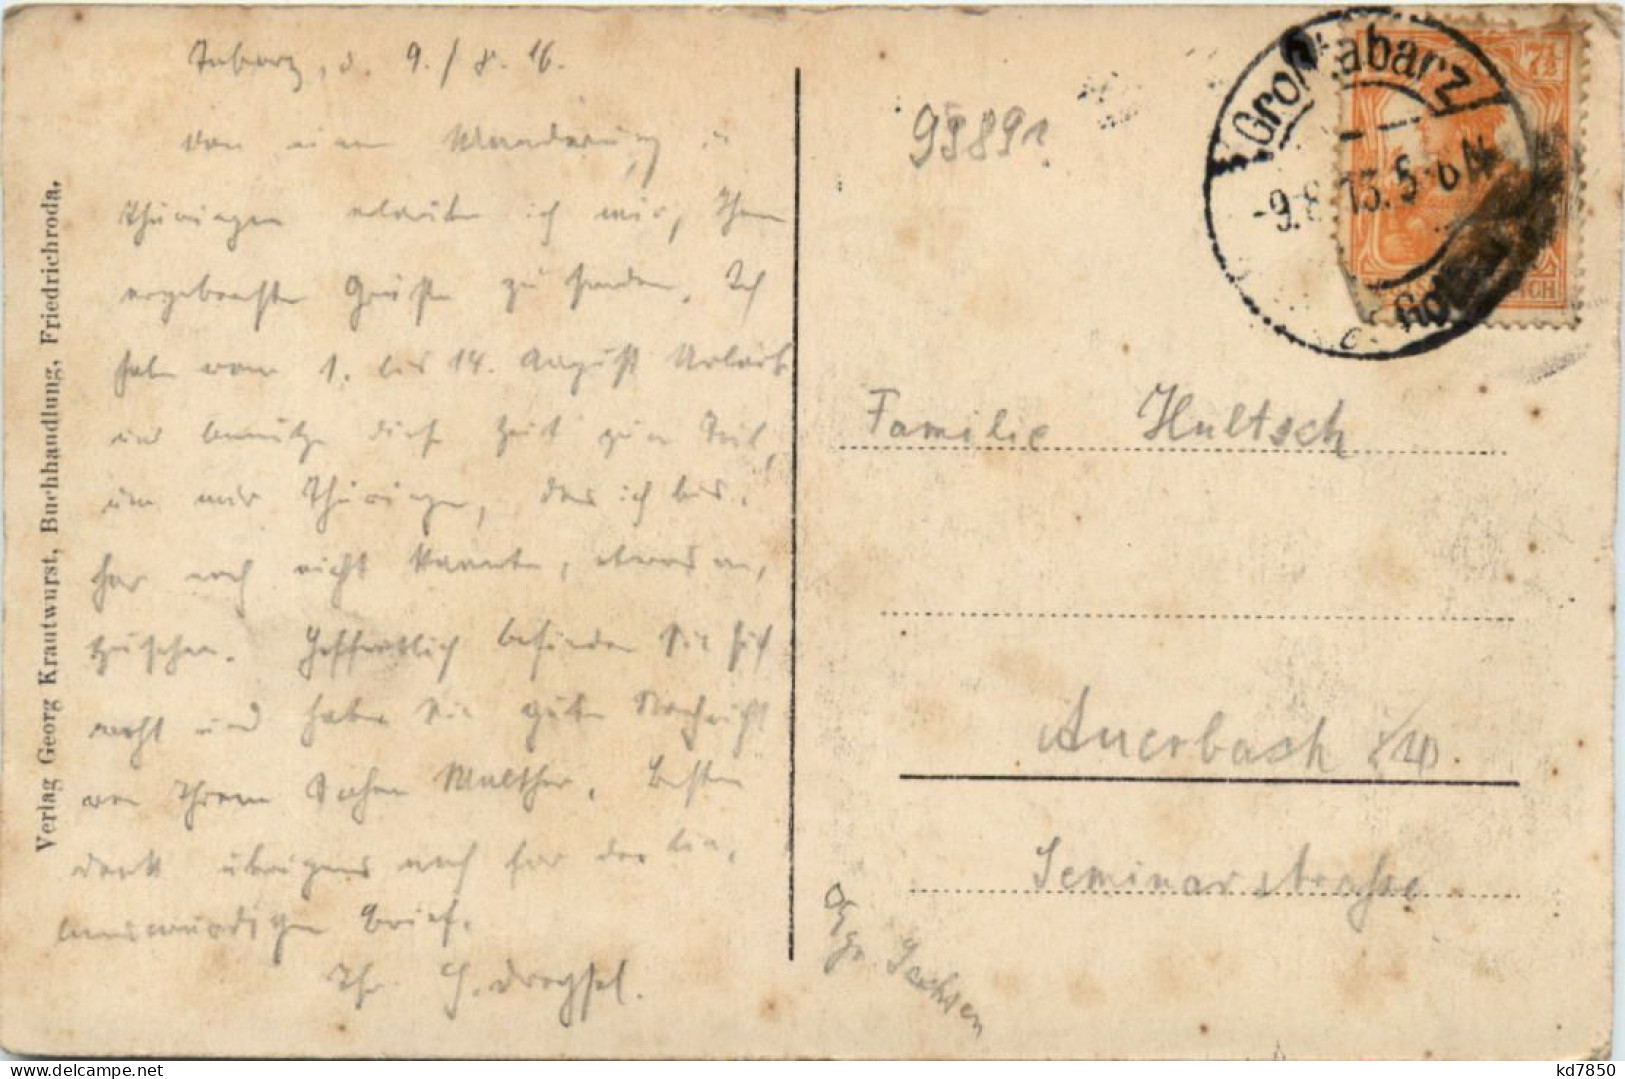 Tabarz, d. 9./8.16.
Von einer Wanderung in
Thüringen erlaube ich mir, Ihnen
ergebenste Grüße zu senden. Ich
habe vom 1. bis 14. August Urlaub
und benütze diese Zeit zum Teil,
um mir Thüringen, das ich bis-
her noch nicht kannte, etwas an-
zusehen. Hoffentlich befinden Sie sich
wohl und haben Sie gute Nachricht
von Ihrem Sohne Walther. Besten
Dank übrigens noch für den lie-
benswürdigen Brief.
Ihr
Verlag Georg Krautwurst, Buchhandlung, Friedrichroda.
95891
Großtabarz
-9.8. 5-6N.
7½
Familie Hultsch
Auerbach i/V.
Seminarstraße
Sachsen
kd7850